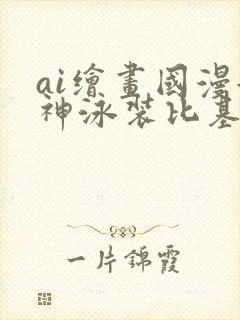 ai繪畫國漫
神泳裝比基
一片錦霞